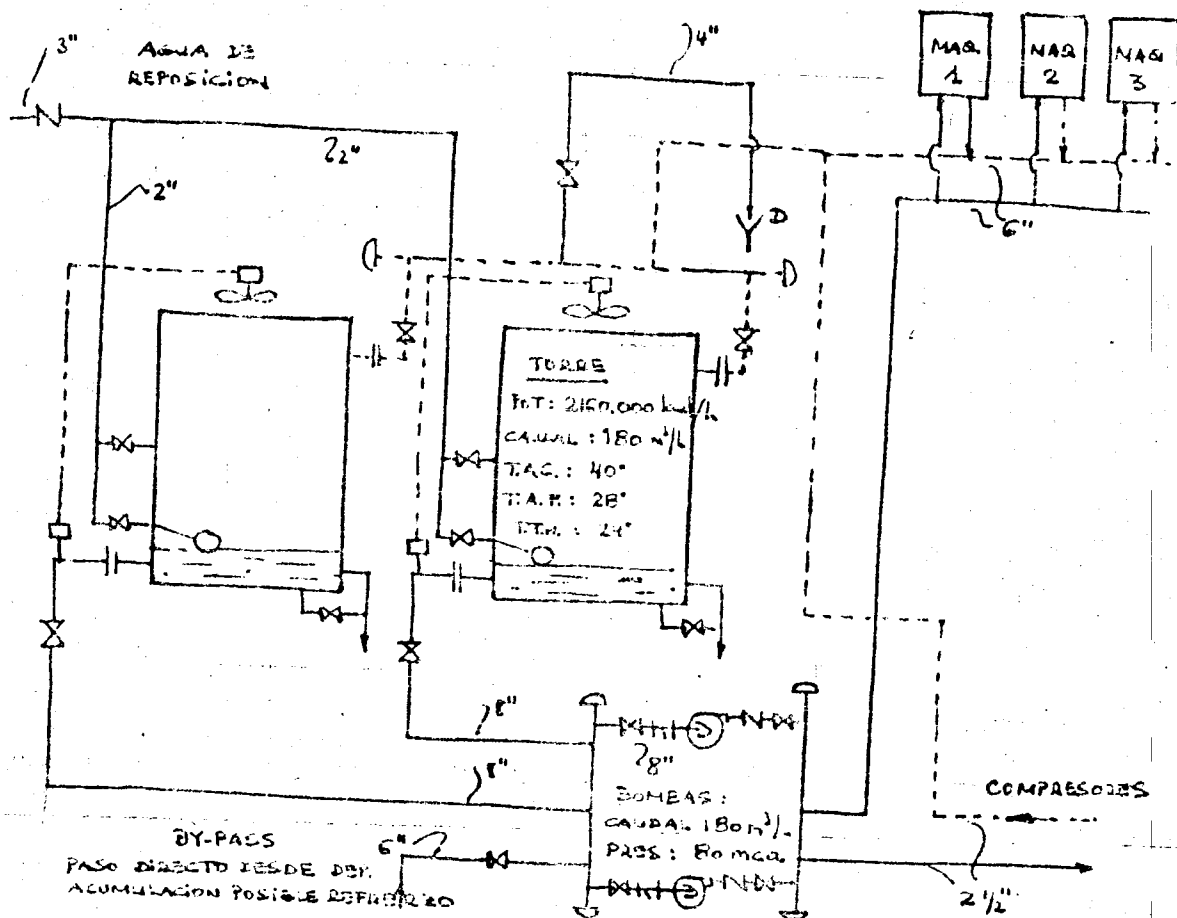 3"
AGUA DE
REPOSICION
4"
MAQ
1
MAQ
2
MAQ
3
2"
2"
D
6"
TORRE
POT: 2160,000 kcal/h
CAUDAL: 180 m³/h
T.A.C.: 40°
T.A.F.: 28°
T.H.: 24°
8"
8"
8"
BOMBAS:
CAUDAL 180 m³/h
PRES: 80 mca
COMPRESORES
2 1/2"
BY-PASS
6"
PASO DIRECTO DESDE DEP.
ACUMULACION POSIBLE REFUERZO